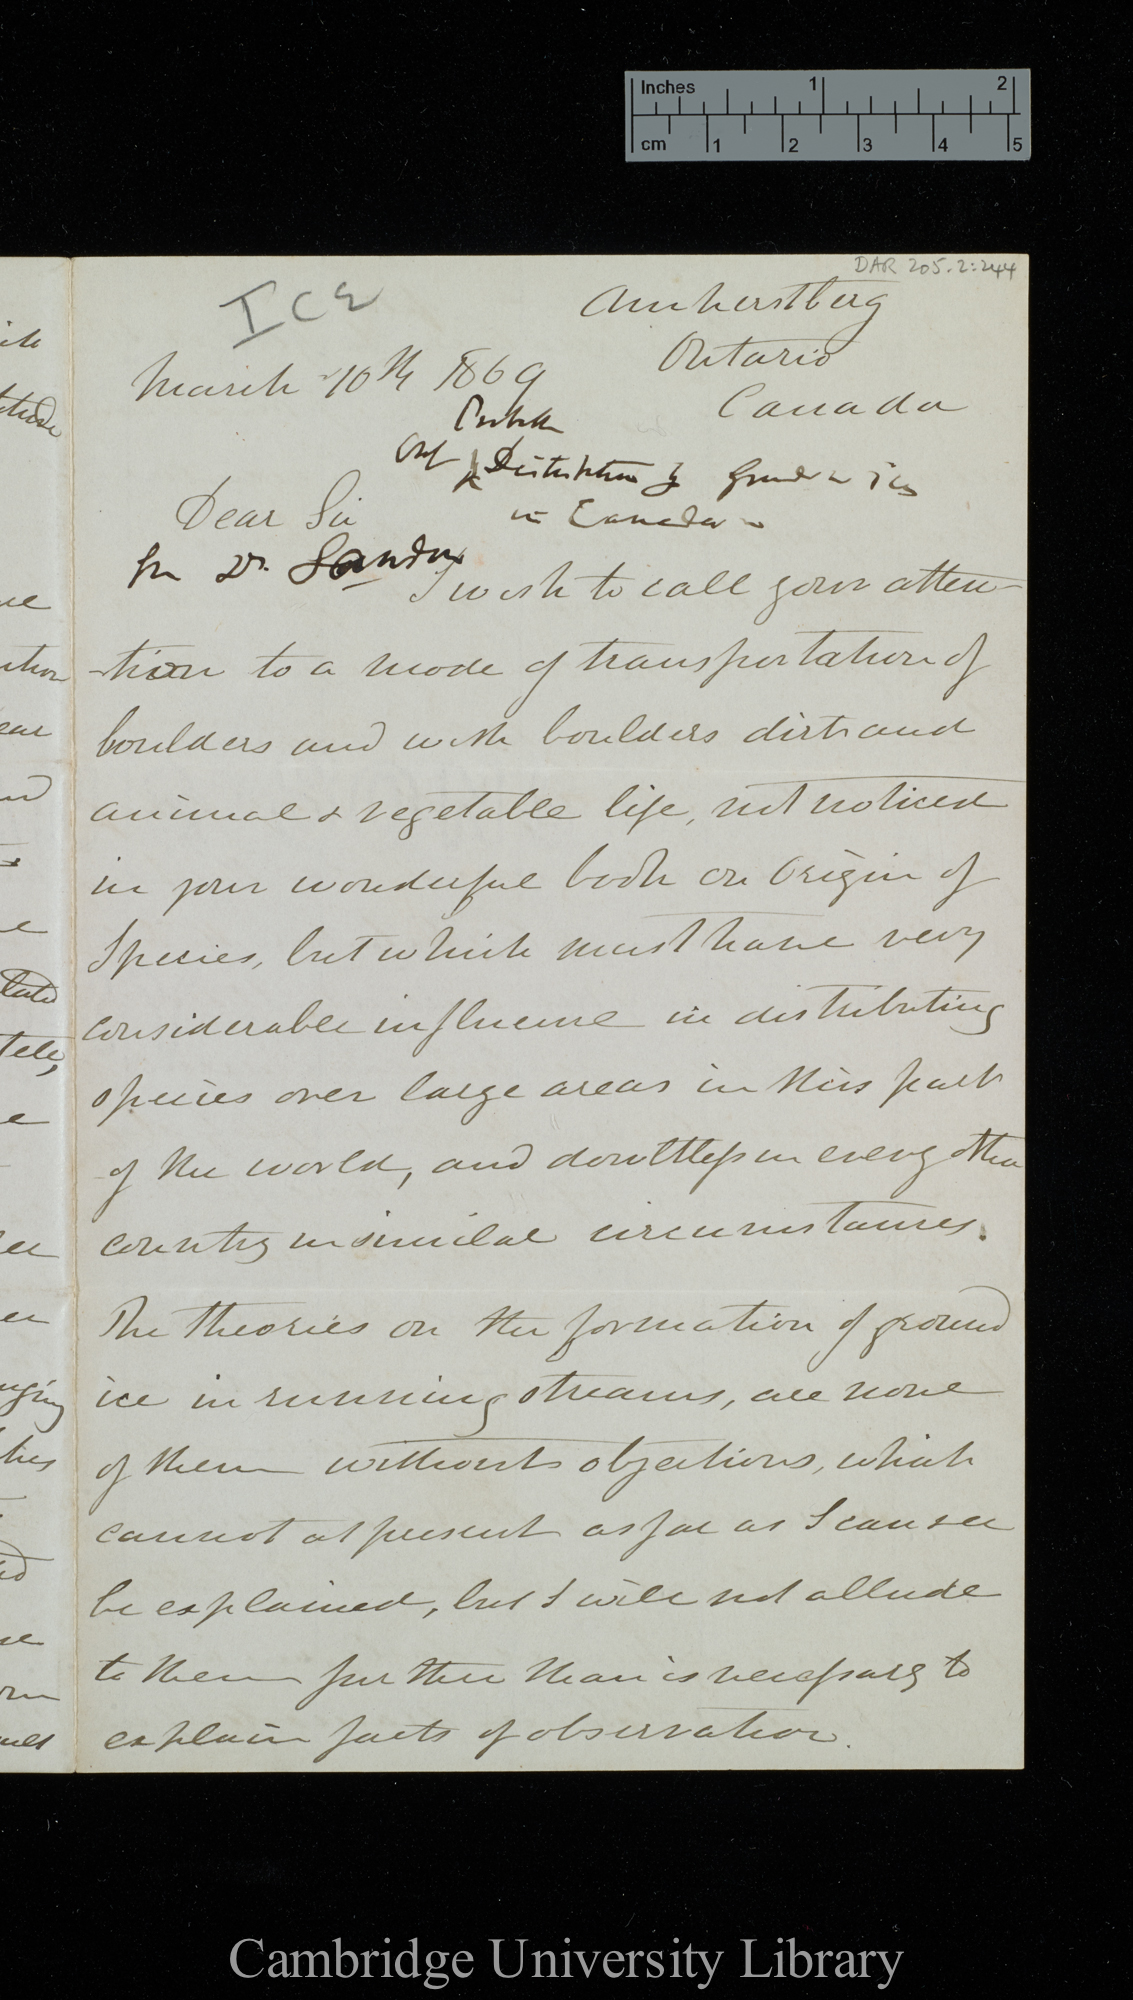 Inches 1 2
cm 1 2 3 4 5
DAR 205.2:244
ICE
Amherstberg
Ontario
Canada
March 10th 1869
on Distribution by Ground ice
in Canada
Dear Sir
I wish to call your atten-
-tion to a mode of transportation of
boulders and with boulders dirt and
animal & vegetable life, not noticed
in your wonderful book on Origin of
Species, but which must have very
considerable influence in distributing
species over large areas in this part
of the world, and doubtless in every other
country in similar circumstances.
The theories on the formation of ground
ice in running streams, are none
of them without objections, which
cannot at present as far as I can see
be explained, but I will not allude
to them further than is necessary to
explain facts of observation.
Cambridge University Library